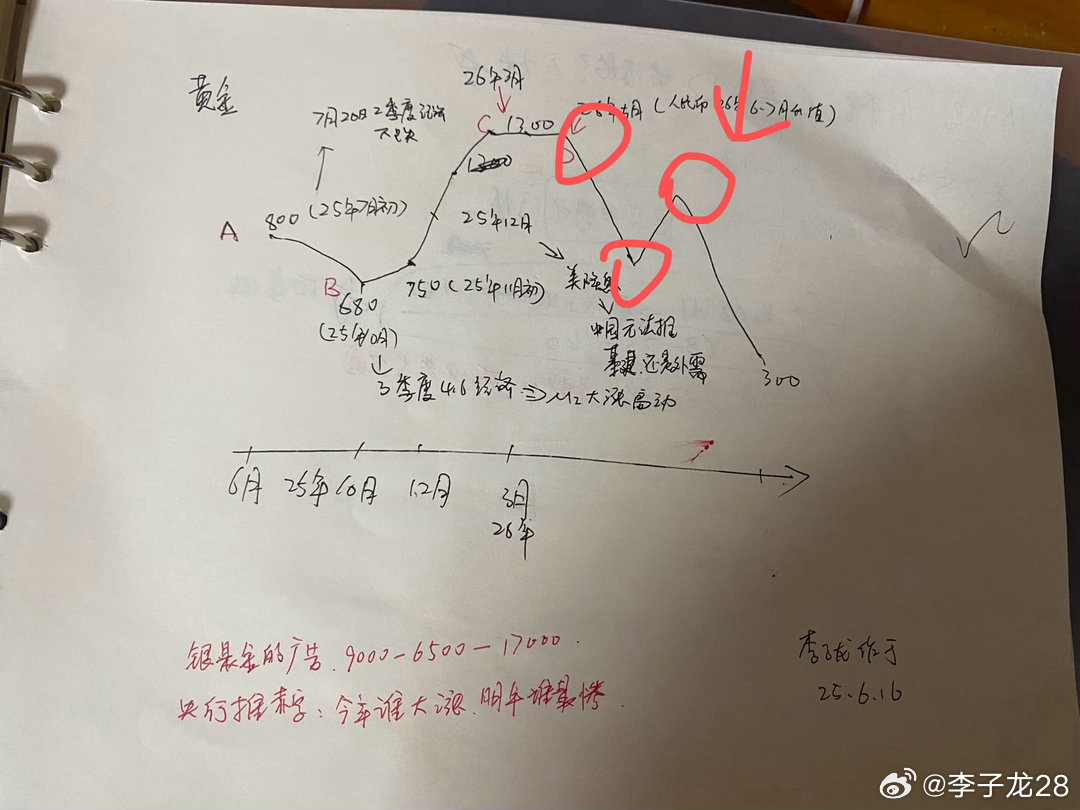 黄金
26年3月
7月20日2季度经济
C 1300
26年5月(人民币 26年6-7月
值)
1200
800(25年7月初)
A
25年12月
B
680
(25年10月)
750(25年11月初)
美降息
中国无法推
还是外需
300
3季度4.6经济⇒M2大涨
6月 25年10月 12月 3月
26年
银是金的广告.9000-6500-17000.
央行推赤字:今年谁大涨.明年谁最惨.
李子龙作于
25.6.16
@李子龙28